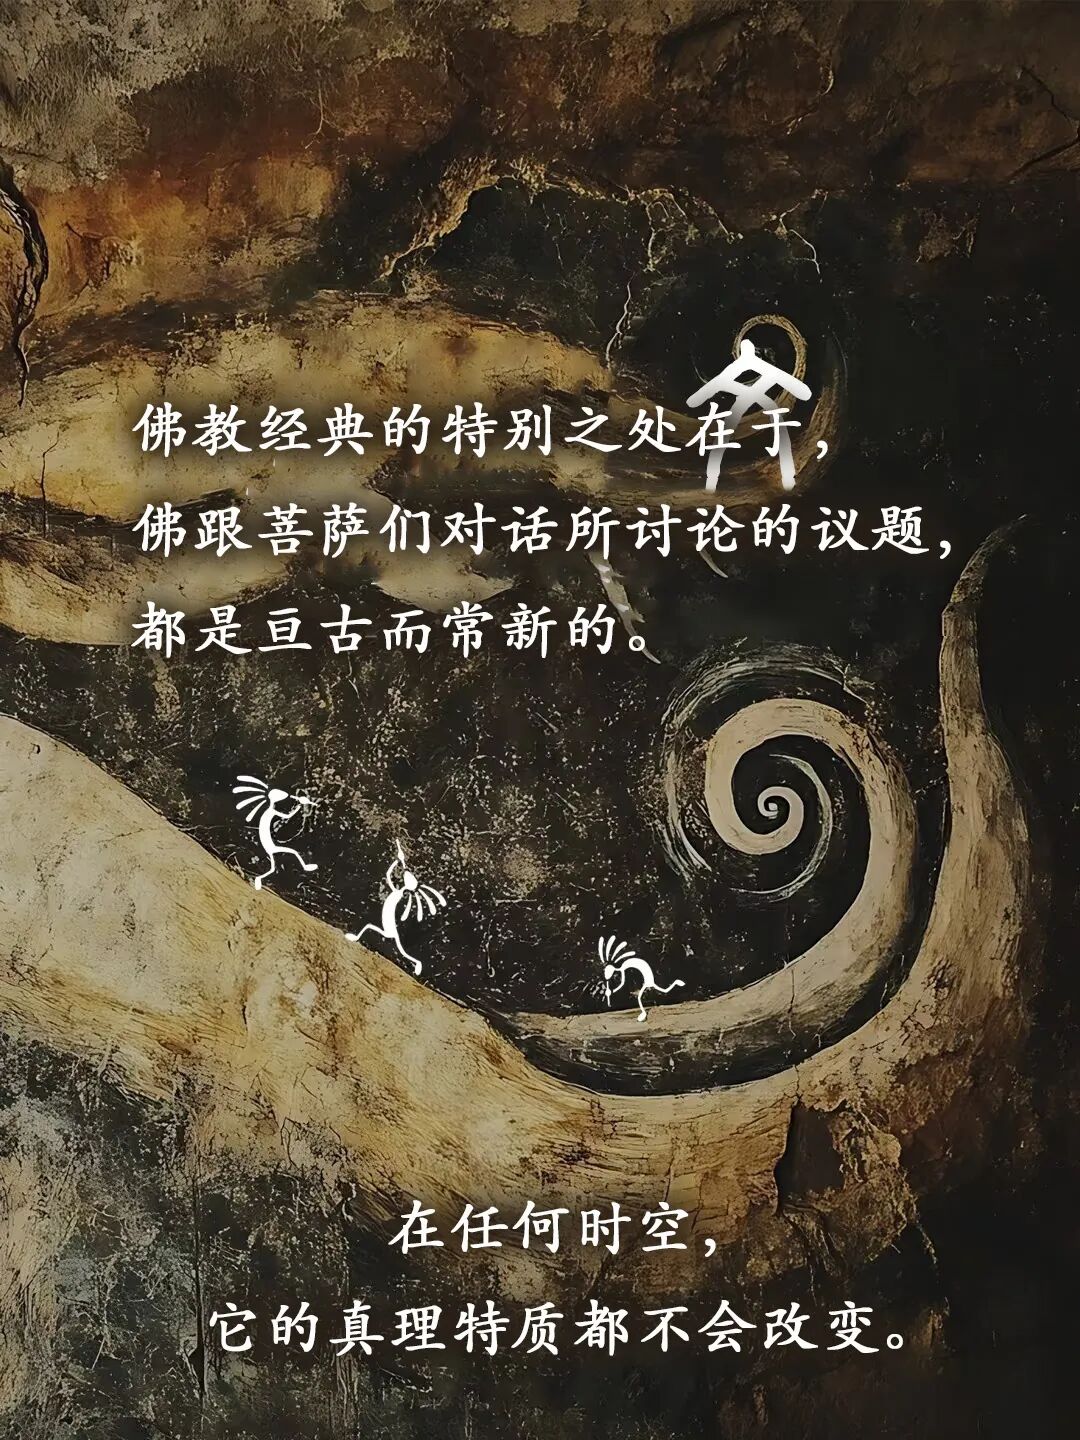 佛教经典的特别之处在于，
佛跟菩萨们对话所讨论的议题，
都是亘古而常新的。
在任何时空，
它的真理特质都不会改变。